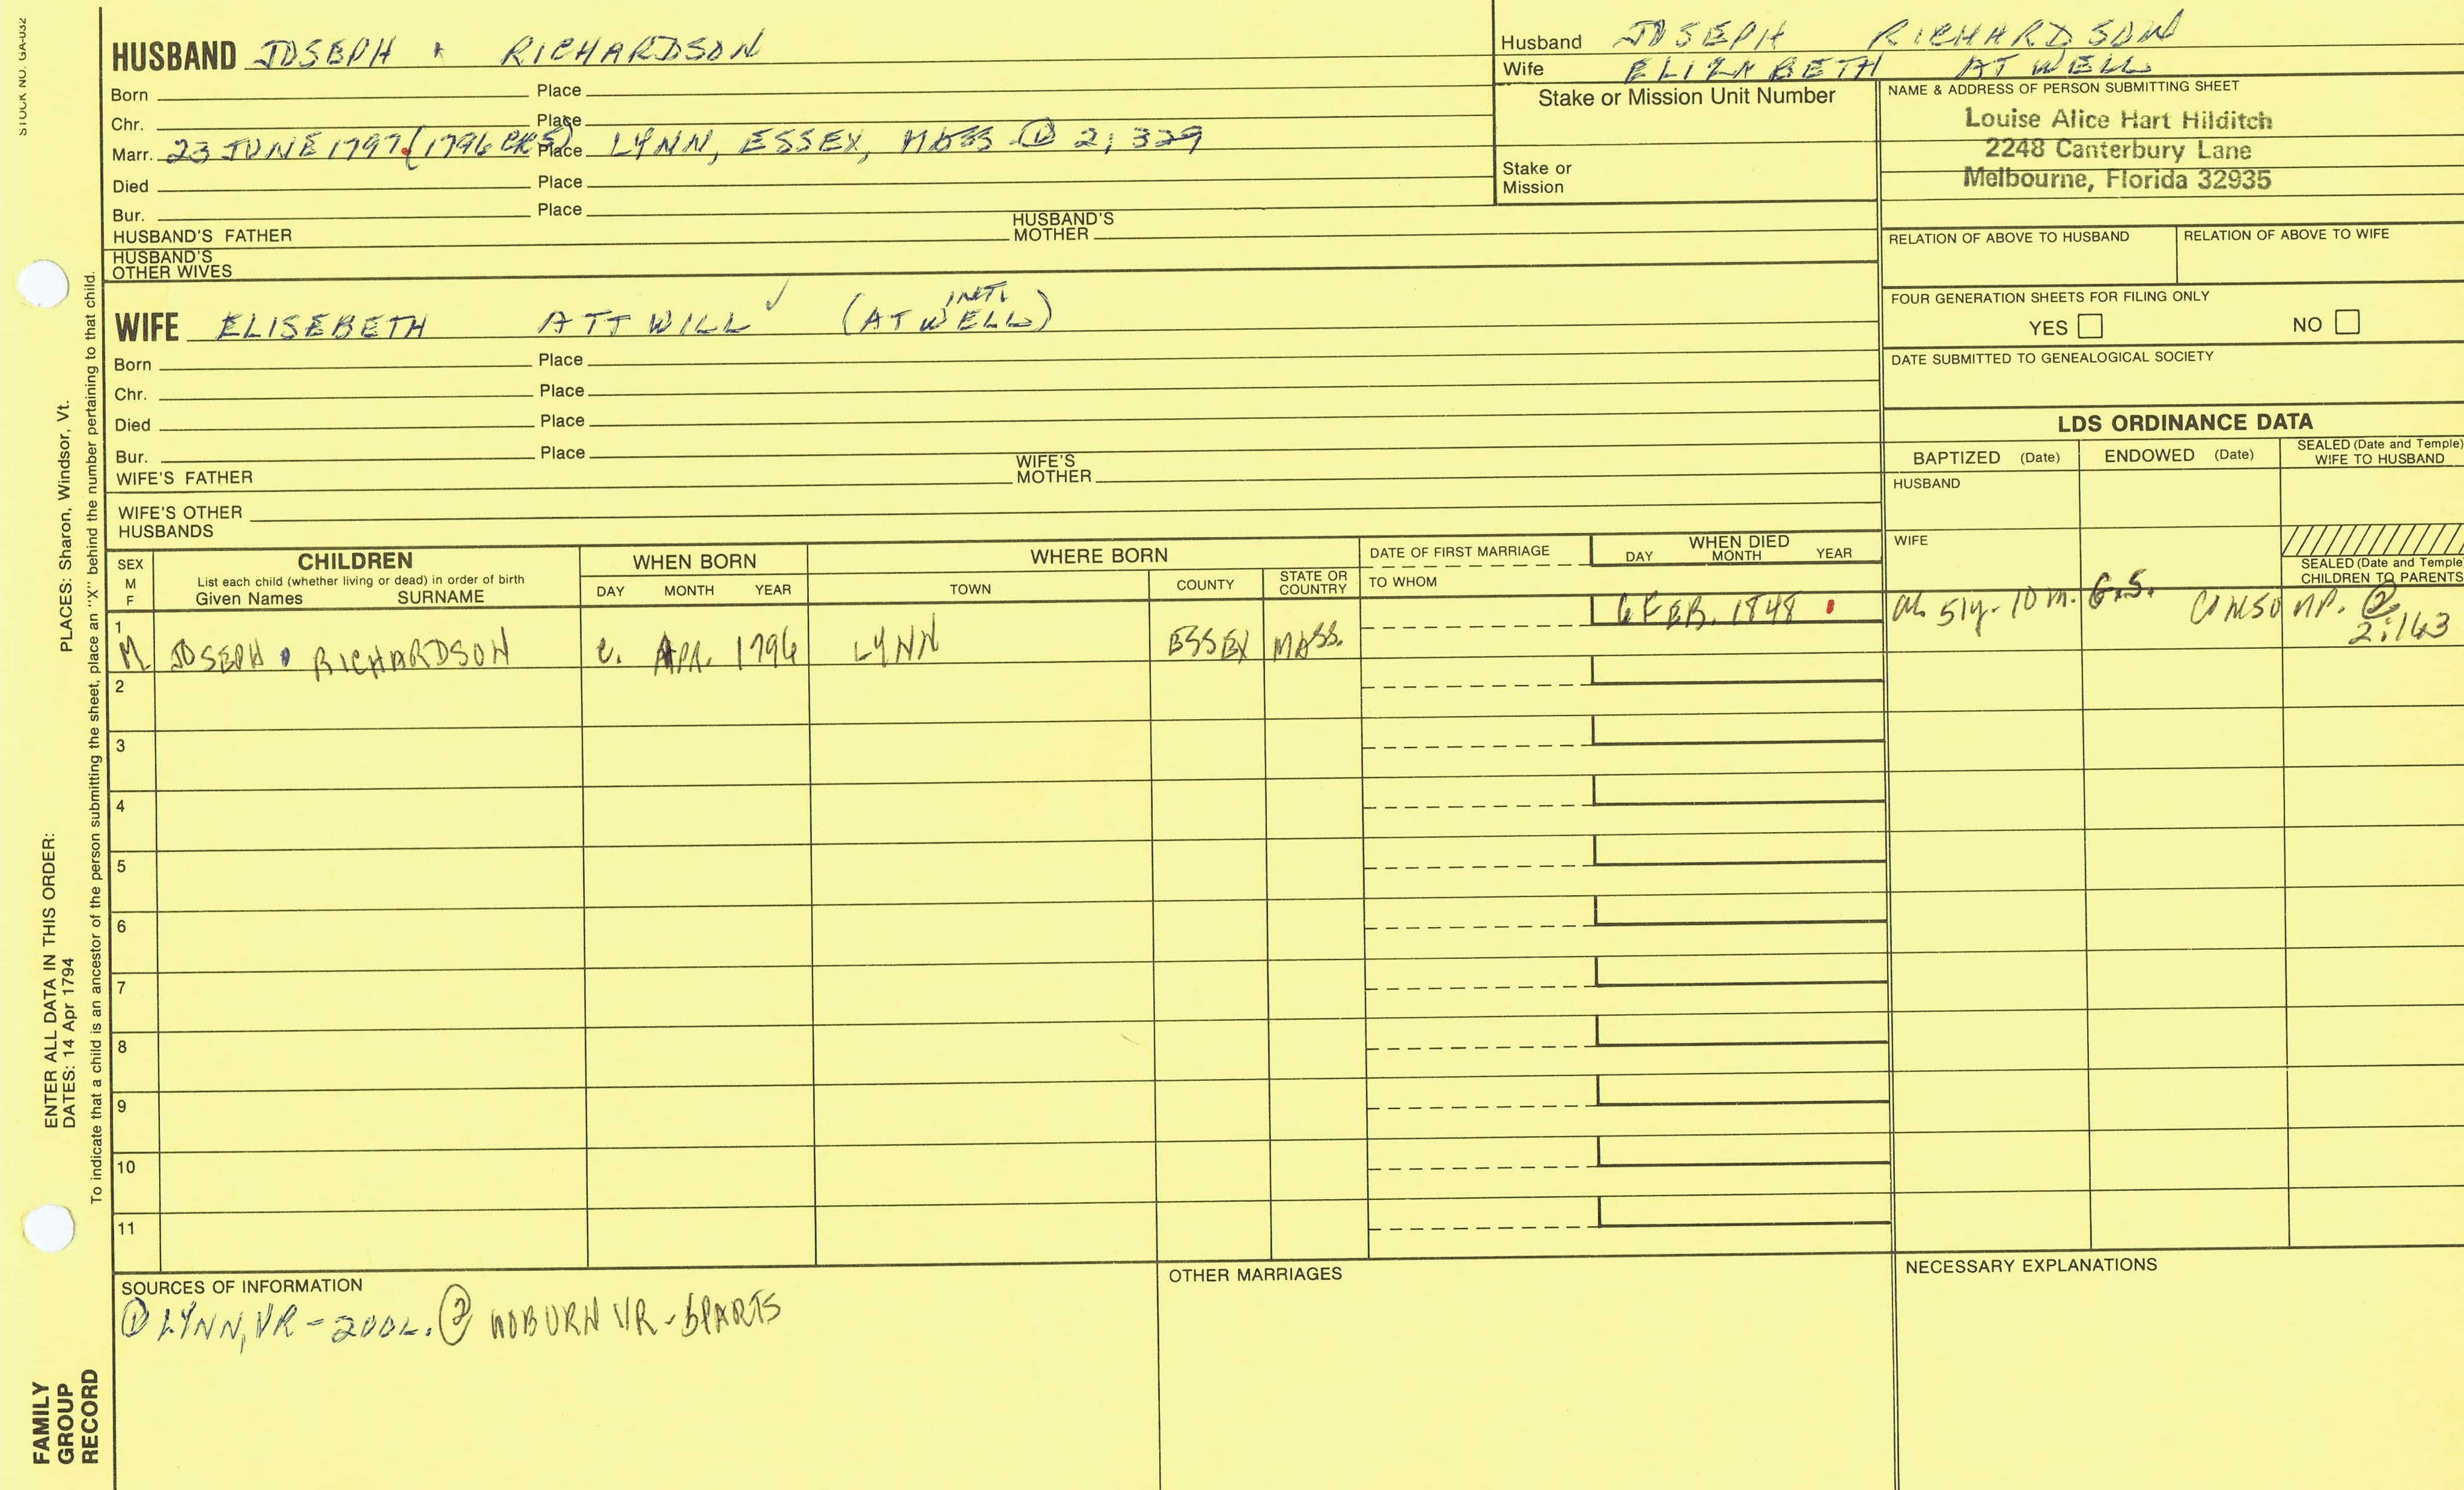 STOCK NO. GA-032
HUSBAND JOSEPH RICHARDSON
Born Place
Chr. Place
Marr. 23 JUNE 1797 (1796 CR5) Place LYNN, ESSEX, MASS ① 2; 329
Died Place
Bur. Place
HUSBAND'S FATHER HUSBAND'S MOTHER
HUSBAND'S OTHER WIVES
Husband JOSEPH RICHARDSON
Wife ELIZABETH ATWELL
Stake or Mission Unit Number
Stake or Mission
NAME & ADDRESS OF PERSON SUBMITTING SHEET
Louise Alice Hart Hilditch
2248 Canterbury Lane
Melbourne, Florida 32935
RELATION OF ABOVE TO HUSBAND RELATION OF ABOVE TO WIFE
FOUR GENERATION SHEETS FOR FILING ONLY
YES NO
DATE SUBMITTED TO GENEALOGICAL SOCIETY
WIFE ELISEBETH ATTWILL (ATWELL INT.)
Born Place
Chr. Place
Died Place
Bur. Place
WIFE'S FATHER WIFE'S MOTHER
WIFE'S OTHER HUSBANDS
LDS ORDINANCE DATA
BAPTIZED (Date) ENDOWED (Date) SEALED (Date and Temple) WIFE TO HUSBAND
HUSBAND
WIFE
SEALED (Date and Temple) CHILDREN TO PARENTS
SEX M F
CHILDREN
List each child (whether living or dead) in order of birth
Given Names SURNAME
WHEN BORN
DAY MONTH YEAR
WHERE BORN
TOWN COUNTY STATE OR COUNTRY
DATE OF FIRST MARRIAGE
TO WHOM
WHEN DIED
DAY MONTH YEAR
1 M JOSEPH RICHARDSON c. APR. 1796 LYNN ESSEX MASS. 6 FEB. 1848 51y. 10m. G.S. CONSUMP. ② 2:163
2
3
4
5
6
7
8
9
10
11
SOURCES OF INFORMATION
① LYNN, VR - 2VOL. ② WOBURN VR - PARTS
OTHER MARRIAGES
NECESSARY EXPLANATIONS
ENTER ALL DATA IN THIS ORDER:
DATES: 14 Apr 1794 PLACES: Sharon, Windsor, Vt.
To indicate that a child is an ancestor of the person submitting the sheet, place an "X" behind the number pertaining to that child.
FAMILY
GROUP
RECORD